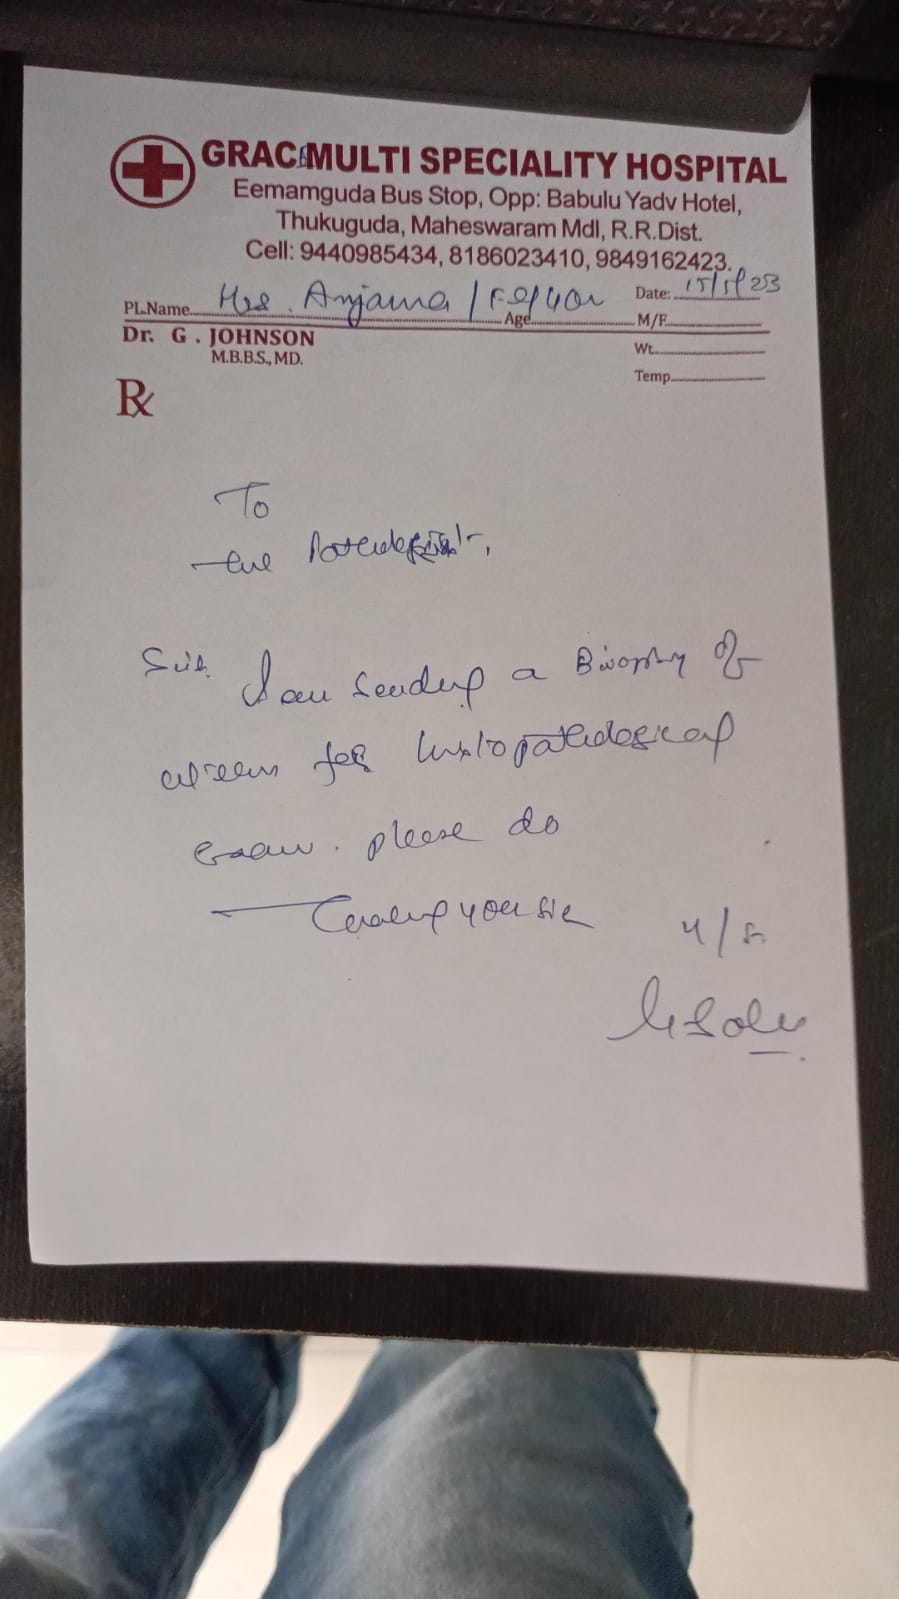 GRACE MULTI SPECIALITY HOSPITAL
Eemamguda Bus Stop, Opp: Babulu Yadv Hotel,
Thukuguda, Maheswaram Mdl, R.R.Dist.
Cell: 9440985434, 8186023410, 9849162423.
Pt.Name Mrs. Anjama / Age Date: 15/5/23
Dr. G. JOHNSON M/F
M.B.B.S., MD. Wt.
Rx Temp
To
the Pathologist,
Sir I am sending a Biopsy of
for histopathological
exam. please do
Thanking you sir